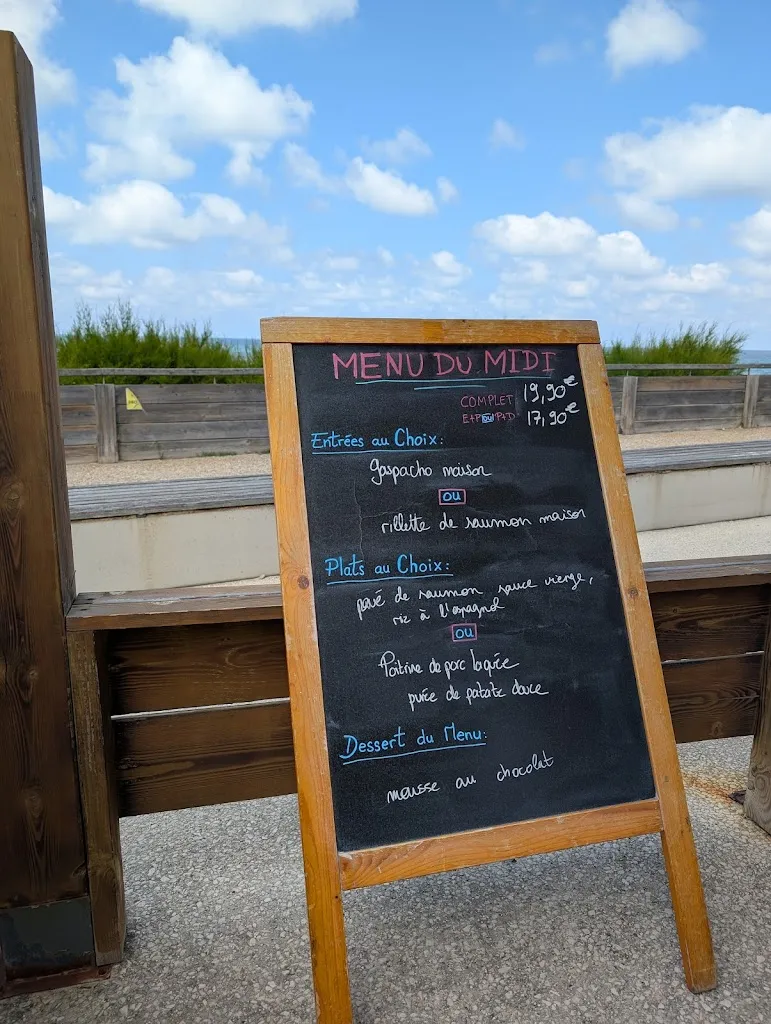 MENU DU MIDI
COMPLET 19,90€
E+P ou P+D 17,90€
Entrées au Choix:
gaspacho maison
ou
rillette de saumon maison
Plats au Choix:
pavé de saumon sauce vierge,
riz à l'espagnol
ou
Poitrine de porc laquée
purée de patate douce
Dessert du Menu:
mousse au chocolat